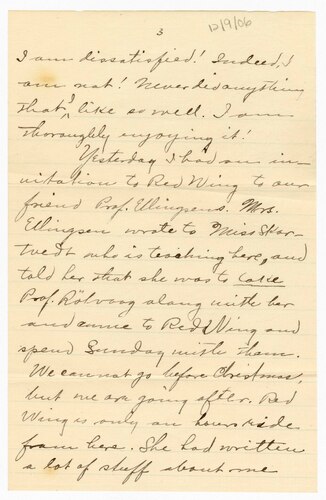 12/9/06
3
I am dissatisfied! Indeed, I
am not! Never did anything
that I like so well. I am
thoroughly enjoying it!
Yesterday I had an in-
vitation to Red Wing to our
friend Prof. Ellingsens. Mrs.
Ellingsen wrote to Miss Skar-
tvedt who is teaching here, and
told her that she was to take
Prof. Rölvaag along with her
and come to Red Wing and
spend Sunday with them.
We cannot go before Christmas,
but we are going after. Red
Wing is only an hours ride
from here. She had written
a lot of stuff about me